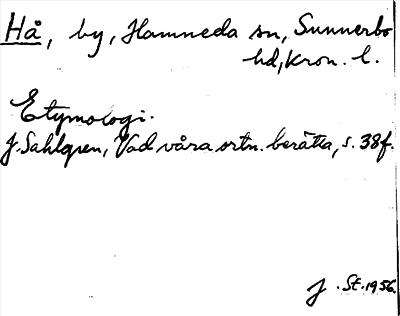 Hå, by, Hamneda sn, Sunnerbo
hd, Kron. l.
Etymologi.
J. Sahlgren, Vad våra ortn. berätta, s. 38f.
J. St. 1956.